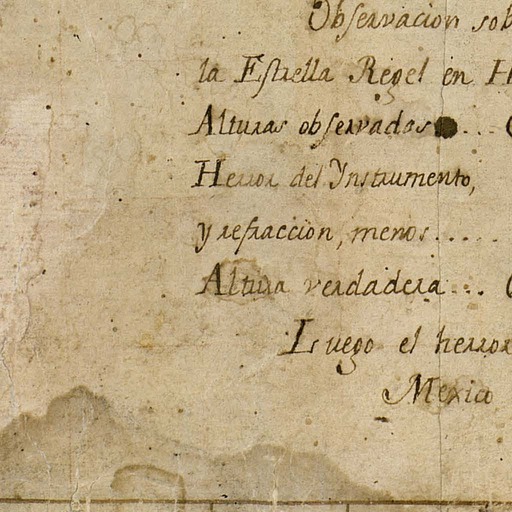 Observacion sob
la Estrella Regel en H
Alturas observadas ...
Herror del Ynstrumento,
y refraccion, menos .....
Altura verdadera ...
Luego el herror
Mexico